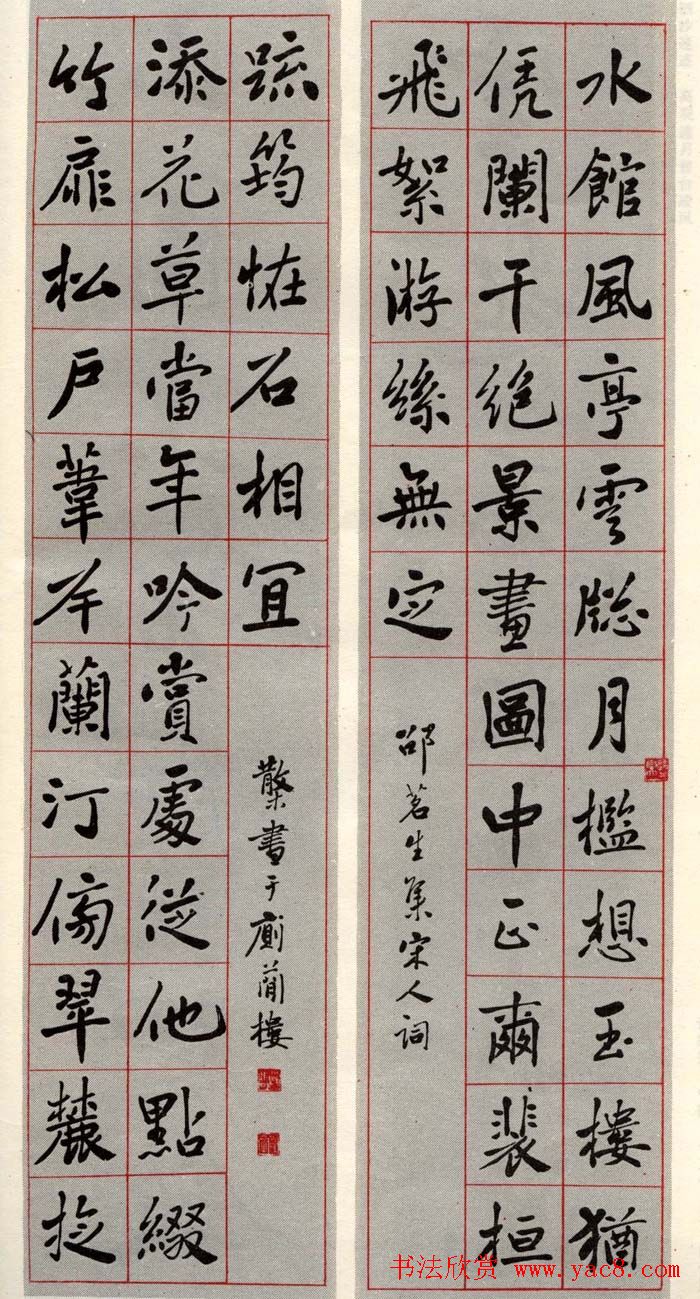 水館風亭雲牕月檻想玉樓猶
凭闌干絶景畫圖中正爾裴桓
飛絮游絲無定
邵茗生集宋人詞
竹扉松戶葦岸蘭汀傍翠麓
添花草當年吟賞處從他點綴
疏筠怪石相宜
書于樓
书法欣赏 www.yac8.com